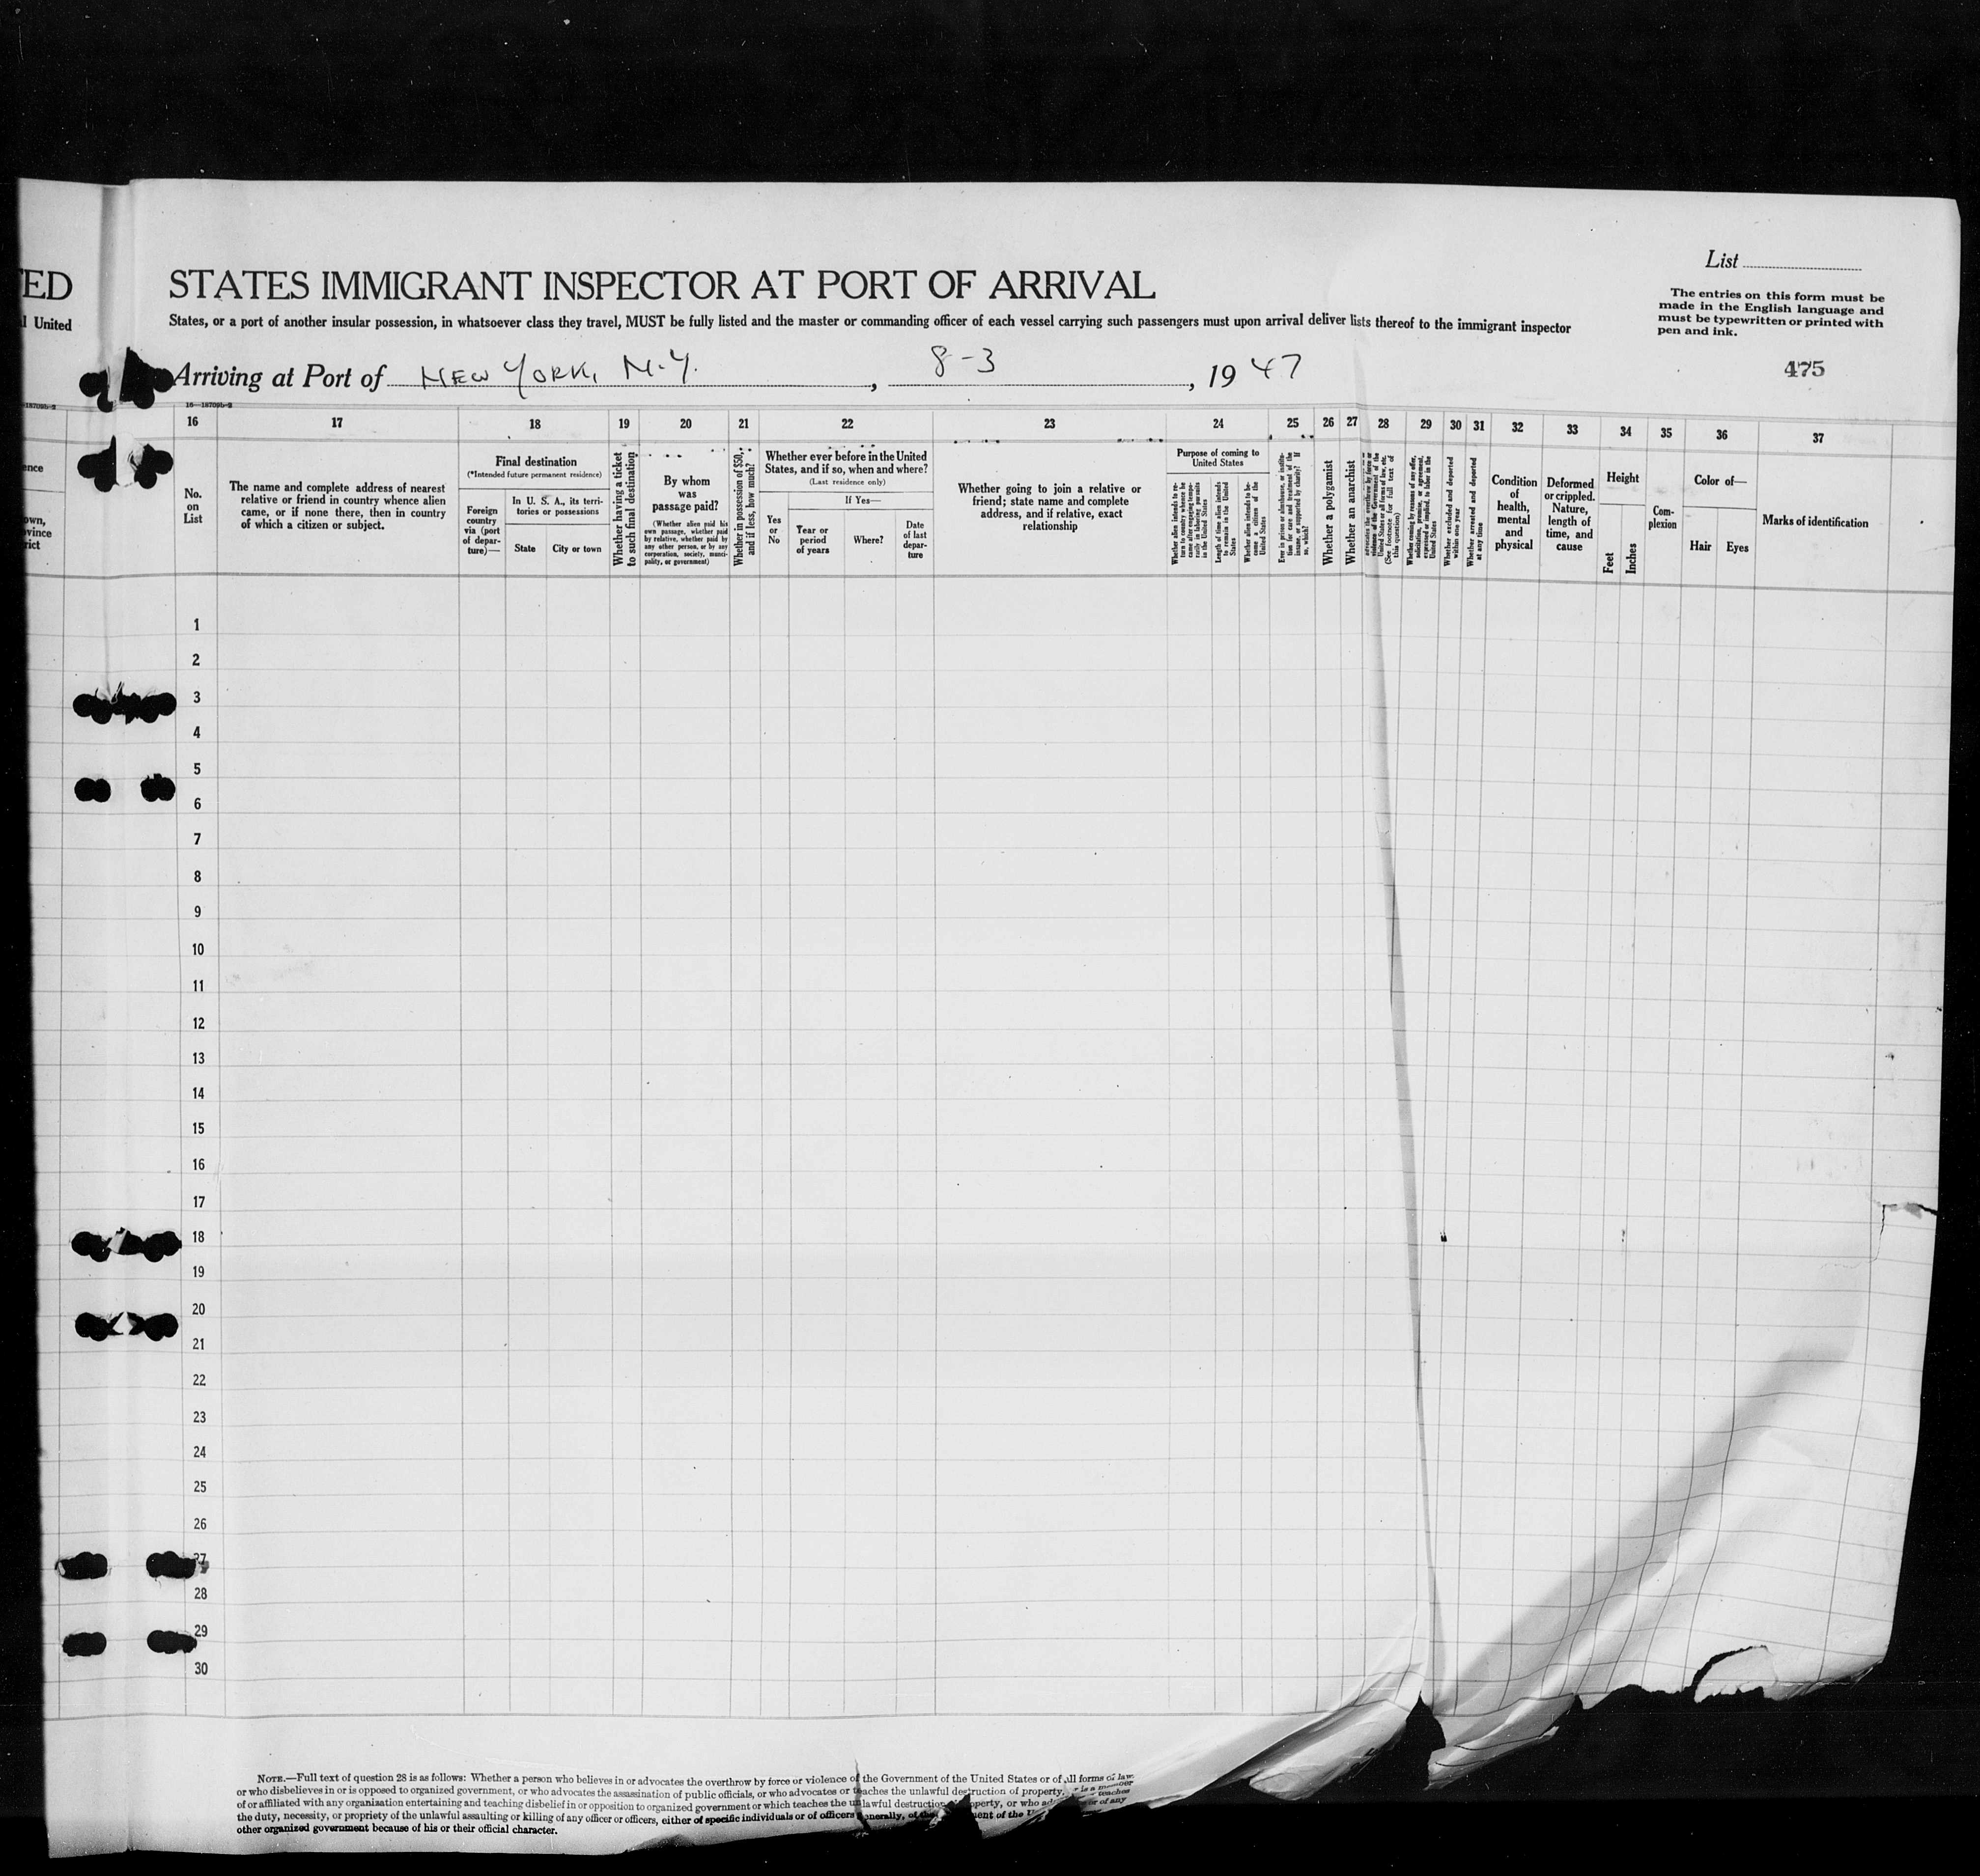 ED
STATES IMMIGRANT INSPECTOR AT PORT OF ARRIVAL
List
The entries on this form must be
made in the English language and
must be typewritten or printed with
pen and ink.
United
States, or a port of another insular possession, in whatsoever class they travel, MUST be fully listed and the master or commanding officer of each vessel carrying such passengers must upon arrival deliver lists thereof to the immigrant inspector
Arriving at Port of NEW YORK, N.Y. , 8-3 , 1947
475
16 17 18 19 20 21 22 23 24 25 26 27 28 29 30 31 32 33 34 35 36 37
No.
on
List
The name and complete address of nearest
relative or friend in country whence alien
came, or if none there, then in country
of which a citizen or subject.
Final destination
(*Intended future permanent residence)
Foreign
country
via (port
of depar-
ture)—
In U. S. A., its terri-
tories or possessions
State
City or town
Whether having a ticket
to such final destination
By whom
was
passage paid?
(Whether alien paid his
own passage, whether paid
by relative, whether paid by
any other person, or by any
corporation, society, munici-
pality, or government)
Whether in possession of $50,
and if less, how much?
Whether ever before in the United
States, and if so, when and where?
(Last residence only)
Yes
or
No
If Yes—
Year or
period
of years
Where?
Date
of last
depar-
ture
Whether going to join a relative or
friend; state name and complete
address, and if relative, exact
relationship
Purpose of coming to
United States
Whether alien intends to re-
turn to country whence he
came after engaging tempo-
rarily in laboring pursuits
in the United States
Length of time alien intends
to remain in the United
States
Whether alien intends to be-
come a citizen of the
United States
Ever in prison or almshouse, or institu-
tion for care and treatment of the
insane, or supported by charity? If
so, which?
Whether a polygamist
Whether an anarchist
advocates the overthrow by force or
violence of the Government of the
United States or all forms of law, etc.
(See footnote for full text of
this question)
Whether coming by reasons of any offer,
solicitation, promise, or agreement,
expressed or implied, to labor in the
United States
Whether excluded and deported
within one year
Whether arrested and deported
at any time
Condition
of
health,
mental
and
physical
Deformed
or crippled.
Nature,
length of
time, and
cause
Height
Feet
Inches
Com-
plexion
Color of—
Hair
Eyes
Marks of identification
1
2
3
4
5
6
7
8
9
10
11
12
13
14
15
16
17
18
19
20
21
22
23
24
25
26
27
28
29
30
NOTE.—Full text of question 28 is as follows: Whether a person who believes in or advocates the overthrow by force or violence of the Government of the United States or of all forms of law
or who disbelieves in or is opposed to organized government, or who advocates the assassination of public officials, or who advocates or teaches the unlawful destruction of property, is a member
of or affiliated with any organization entertaining and teaching disbelief in or opposition to organized government or which teaches the unlawful destruction property, or who teaches
the duty, necessity, or propriety of the unlawful assaulting or killing of any officer or officers, either of specific individuals or of officers generally, of the of the or of any
other organized government because of his or their official character.